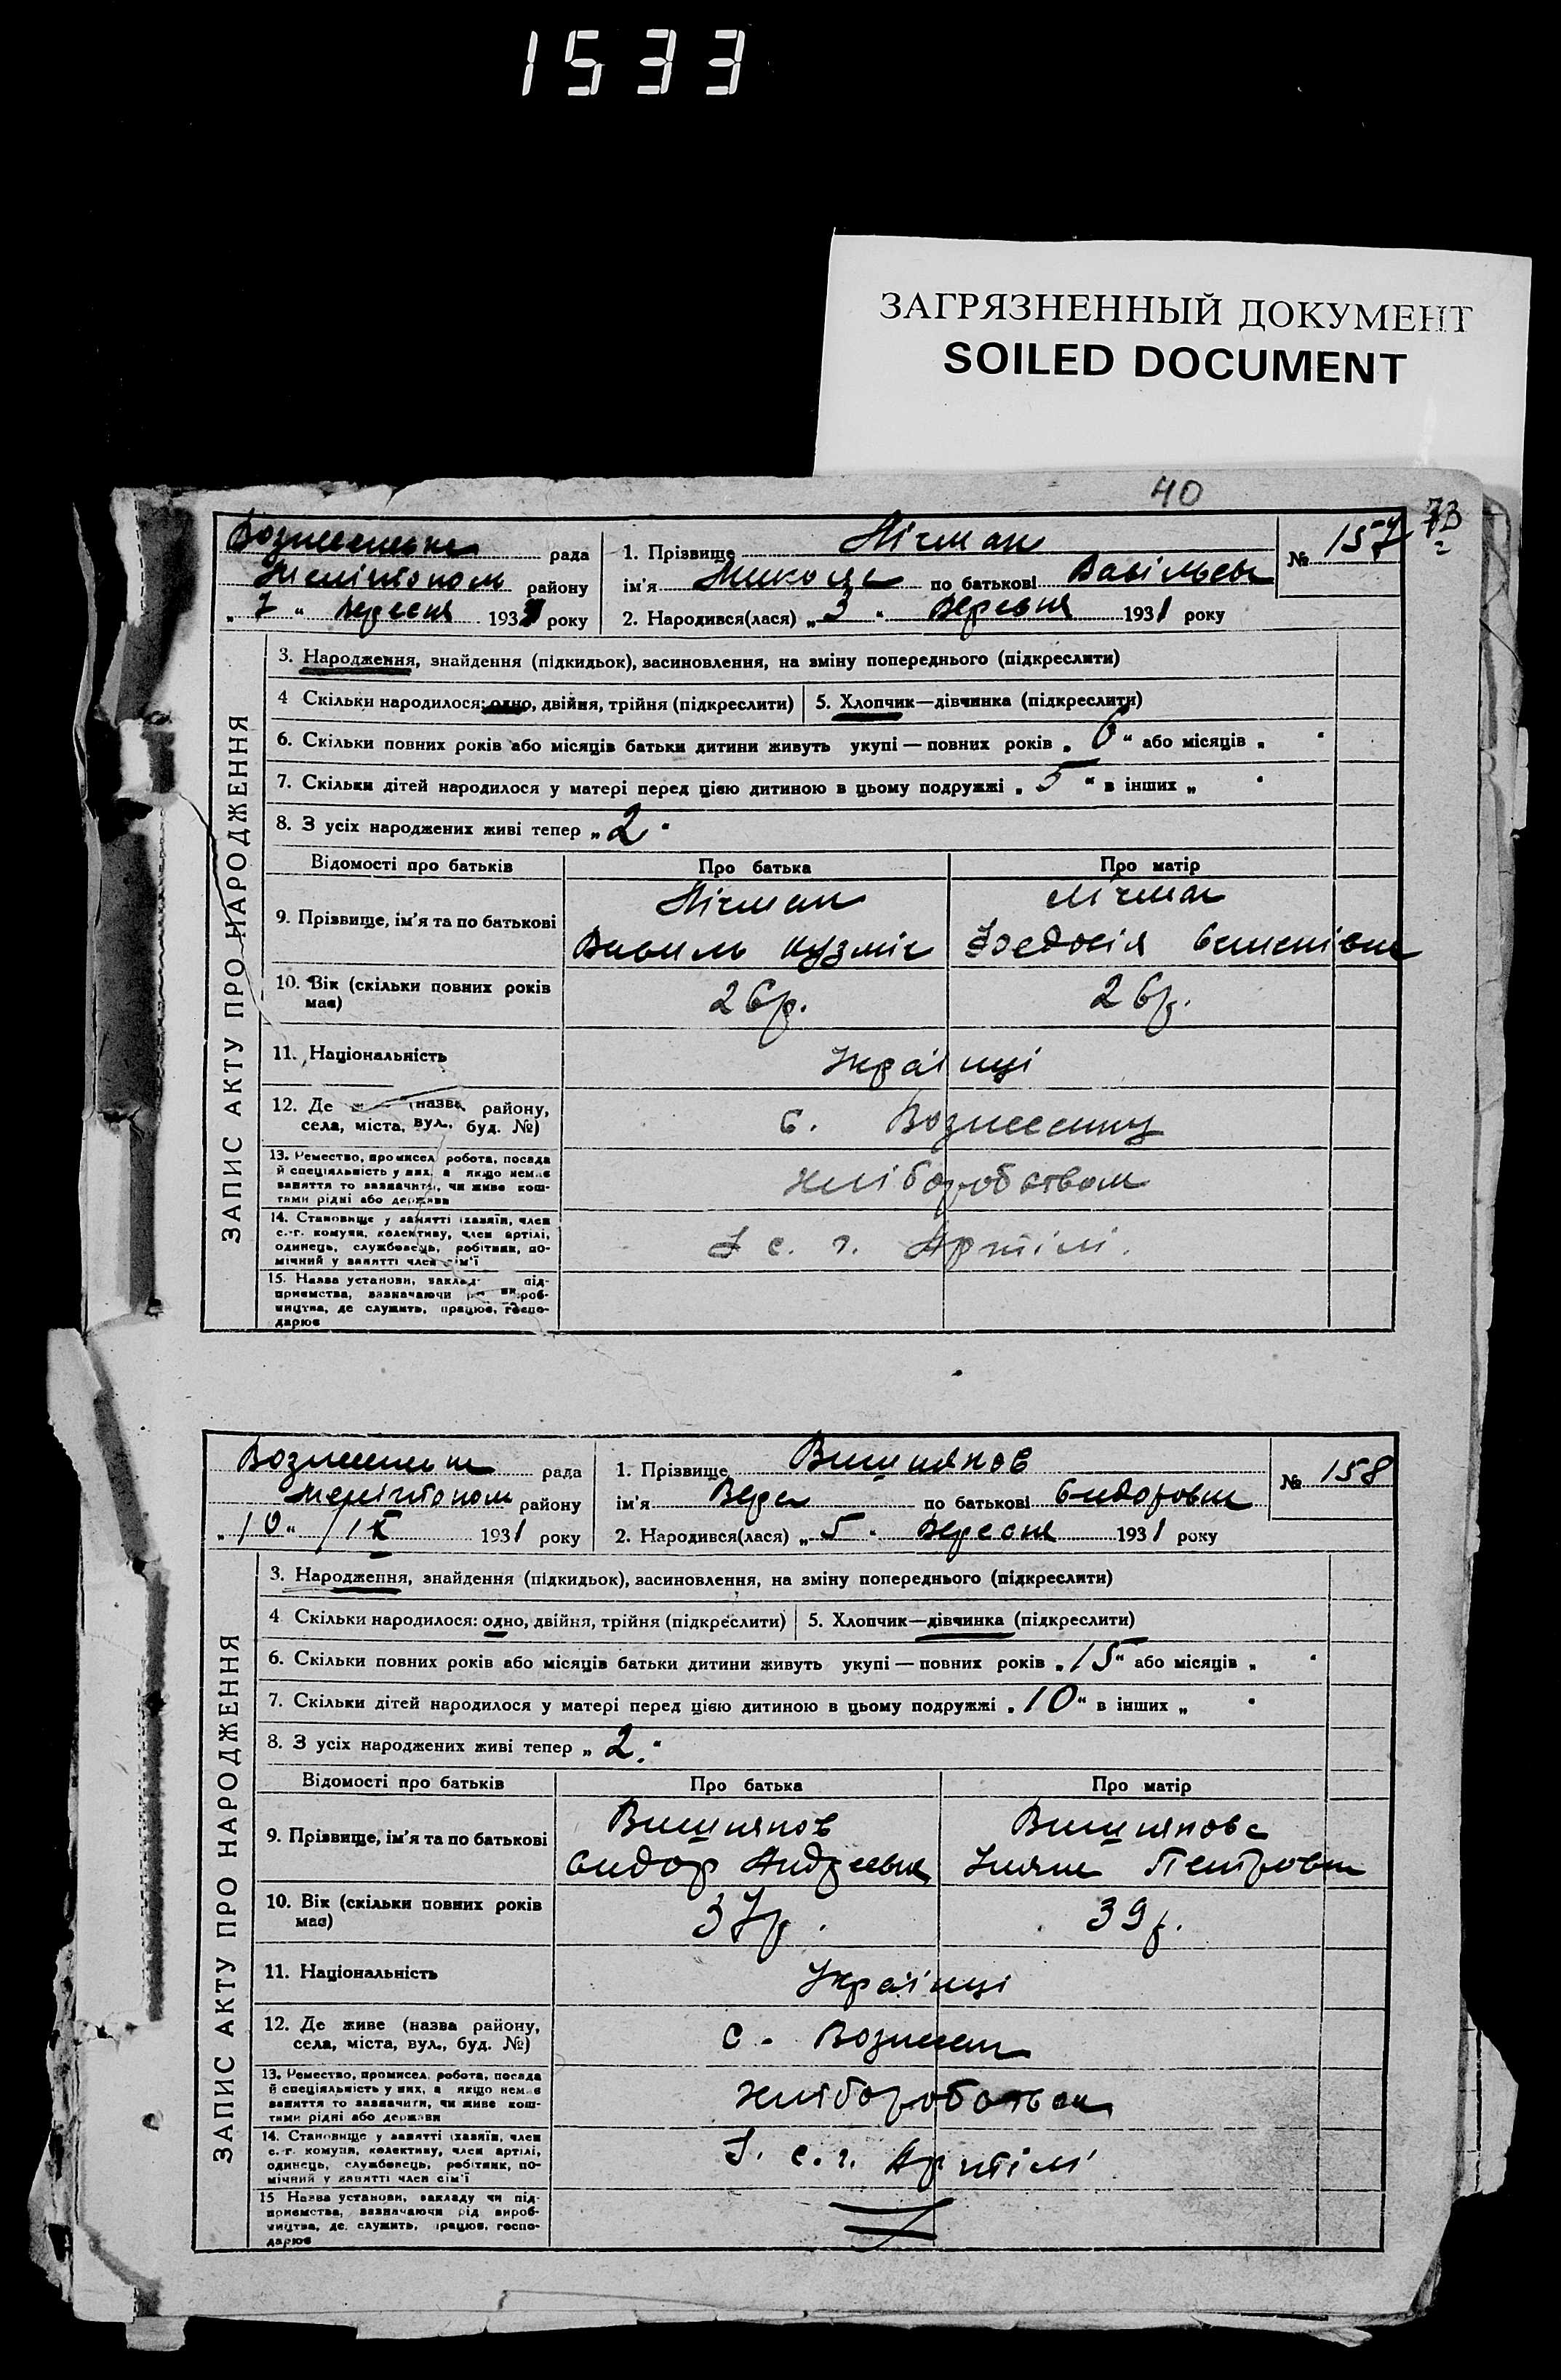 1533
ЗАГРЯЗНЕННЫЙ ДОКУМЕНТ
SOILED DOCUMENT
40
73
рада
Мелітопол району
„ 7 “ Вересня 1931 року
1. Прізвище Лічман
ім'я Микола по батькові
2. Народився(лася) „ 3 “ Вересня 1931 року
№ 157
ЗАПИС АКТУ ПРО НАРОДЖЕННЯ
3. Народження, знайдення (підкидьок), засиновлення, на зміну попереднього (підкреслити)
4 Скільки народилося: одно, двійня, трійня (підкреслити)
5. Хлопчик—дівчинка (підкреслити)
6. Скільки повних років або місяців батьки дитини живуть укупі — повних років „ 6 “ або місяців „ “
7. Скільки дітей народилося у матері перед цією дитиною в цьому подружжі „ 5 “ в інших „ “
8. З усіх народжених живі тепер „ 2 “
Відомості про батьків Про батька Про матір
9. Прізвище, ім'я та по батькові
Лічман Лічман
Василь Кузміч Федосія
10. Вік (скільки повних років має) 26 р. 26 р.
11. Національність Українці
12. Де (назва району,
села, міста, вул., буд. №)
с.
13. Ремество, промисел, робота, посада
й спеціяльність у них, а якщо немає
заняття то зазначити, чи живе кош-
тами рідні або держави
хліборобством
14. Становище у занятті (хазяїн, член
с.-г. комуни, колективу, член артілі,
одинець, службовець, робітник, по-
мічний у занятті член сім'ї
с. г. Артілі.
15. Назва установи, заклад під-
приємства, зазначаючи вироб-
ництва, де служить, працює, госпо-
дарює
рада
Мелітопол району
„ 10 “ /IX 1931 року
1. Прізвище Вишняков
ім'я Вера по батькові Сидоровна
2. Народився(лася) „ 5 “ Вересня 1931 року
№ 158
ЗАПИС АКТУ ПРО НАРОДЖЕННЯ
3. Народження, знайдення (підкидьок), засиновлення, на зміну попереднього (підкреслити)
4 Скільки народилося: одно, двійня, трійня (підкреслити)
5. Хлопчик—дівчинка (підкреслити)
6. Скільки повних років або місяців батьки дитини живуть укупі — повних років „ 15 “ або місяців „ “
7. Скільки дітей народилося у матері перед цією дитиною в цьому подружжі „ 10 “ в інших „ “
8. З усіх народжених живі тепер „ 2 “
Відомості про батьків Про батька Про матір
9. Прізвище, ім'я та по батькові
Вишняков Вишнякова
Сидор Андреевич Петровна
10. Вік (скільки повних років має) 37 р. 39 р.
11. Національність Українці
12. Де живе (назва району,
села, міста, вул., буд. №)
с.
13. Ремество, промисел, робота, посада
й спеціяльність у них, а якщо немає
заняття то зазначити, чи живе кош-
тами рідні або держави
14. Становище у занятті (хазяїн, член
с.-г. комуни, колективу, член артілі,
одинець, службовець, робітник, по-
мічний у занятті член сім'ї
с. г. Артілі
15 Назва установи, закладу чи під-
приємства, зазначаючи рід вироб-
ництва, де служить, працює, госпо-
дарює